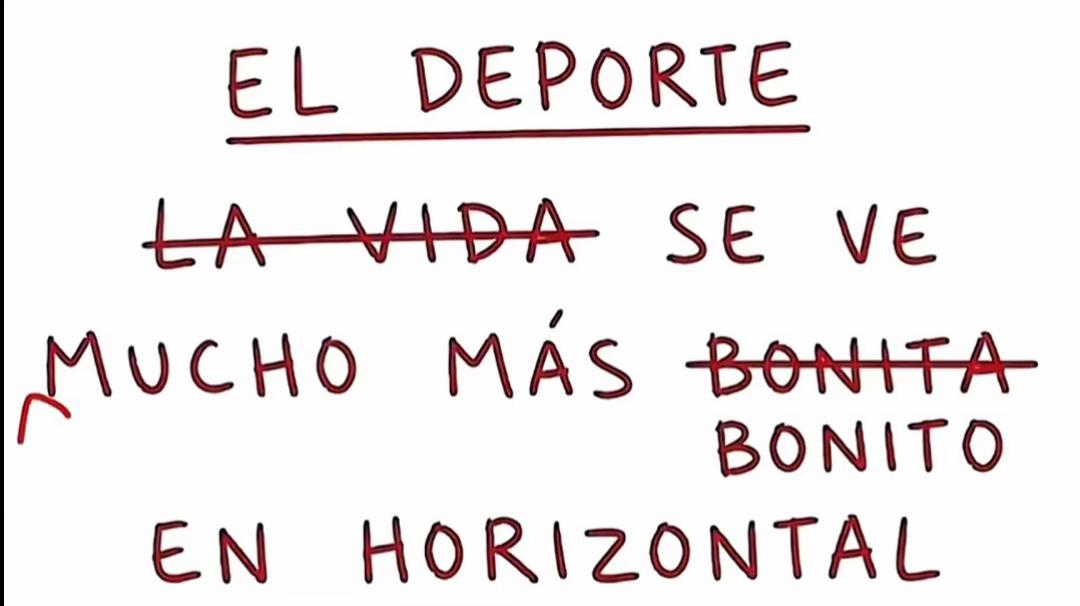 EL DEPORTE
LA VIDA SE VE
MUCHO MÁS BONITA
BONITO
EN HORIZONTAL